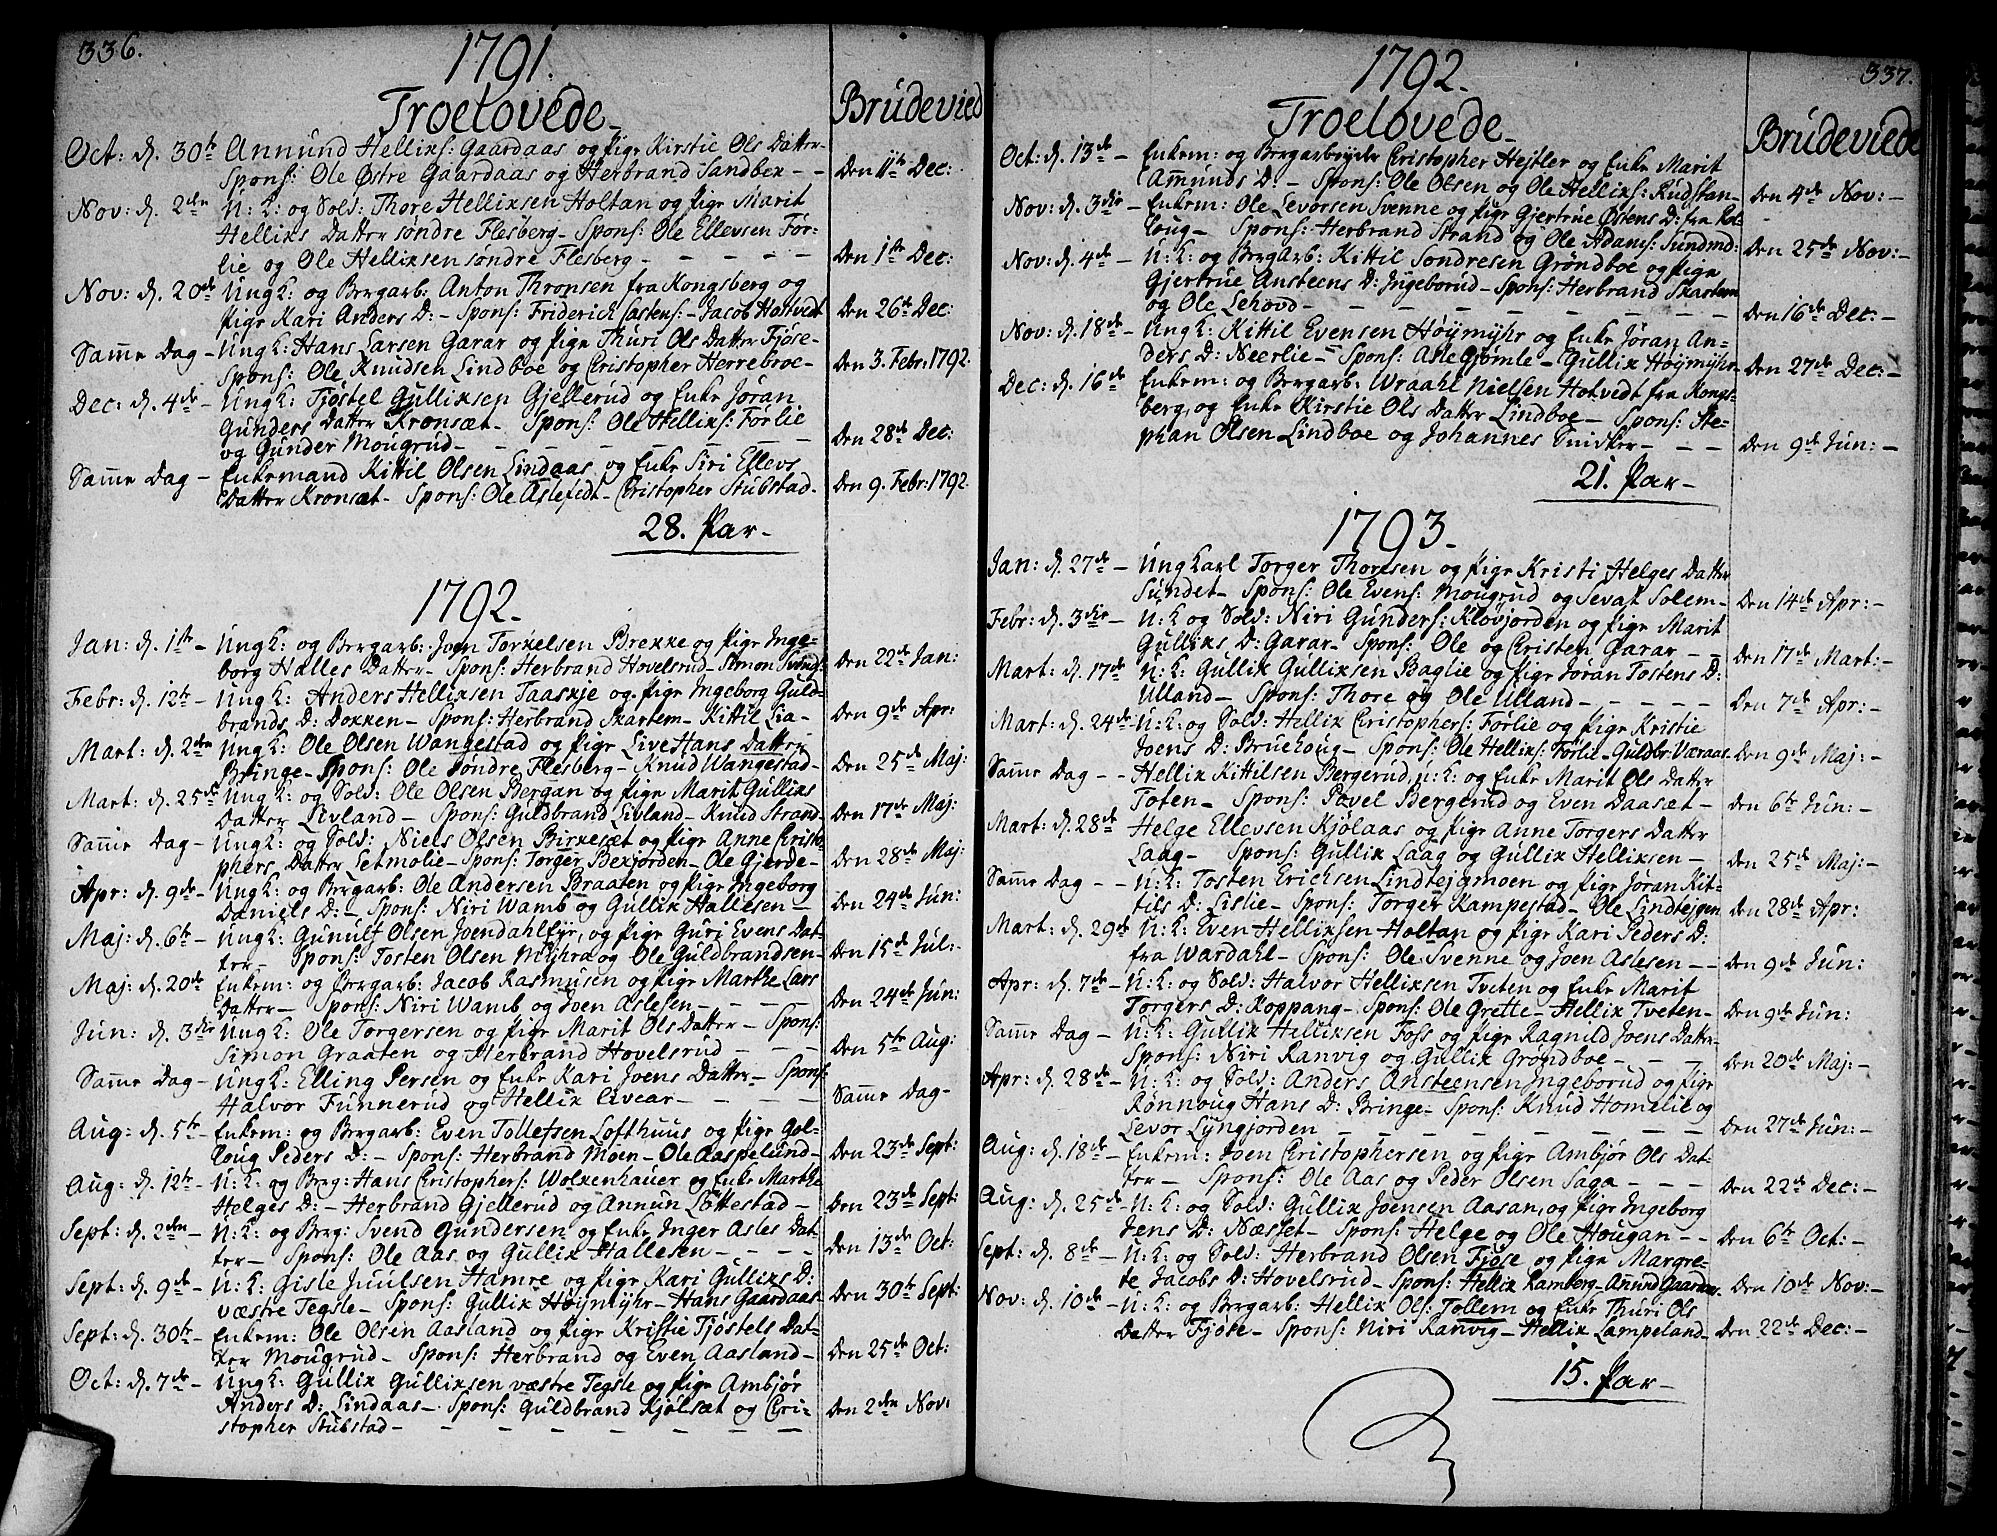 336.
1791.
Troelovede
Brudeviede
Oct: d. 30te Annund Helliks: Gaardaas og Pige Kirstie Ols Datter-
Spons: Ole Østre Gaardaas og Herbrand Sandbek - - Den 11te Dec:
Nov: d. 2den U: K: og Sold: Thore Helliksen Holtan og Pige Marit
Helliks Datter søndre Flesberg- Spons: Ole Ellevsen Før-
lie og Ole Helliksen søndre Flesberg - - - - - Den 1te Dec:
Nov: d. 20de Ung K: og Bergarb: Anton Thronsen fra Kongsberg og
Pige Kari Anders D: - Spons: Friderich Castens: - Jacob Holtvedt Den 26te Dec:
Samme Dag - Ung K: Hans Larsen Garar og Pige Thuri Ols Datter Fjøse-
Spons: Ole Knudsen Lindboe og Christopher Herrebroe- Den 3. Febr: 1792.
Dec: d. 4de - Ung K: Tjøstel Gulliksen Gjellerud og Enke Jøran
Gunders Datter Kronsæt- Spons: Ole Helliks: Førlie
og Gunder Mougrud- - - - - - Den 28de Dec:
Samme Dag - Enkemand Kittil Olsen Lindaas og Enke Siri Ellevs
Datter Kronsæt- Spons: Ole Aslefedt- Christopher Stubstad- Den 9. Febr: 1792.
28. Par-
1792.
Jan: d. 1te - Ung K: og Bergarb: Joen Torkelsen Brekke og Pige Inge-
borg Halles Datter- Spons: Herbrand Hovelsrud- Simon Den 22de Jan:
Febr: d. 12te - Ung K: Anders Helliksen Taaskje og Pige Ingeborg Guld-
brands D: Dokken- Spons: Herbrand Skartem- Kittil Lia- Den 9de Apr:
Mart: d. 2den Ung K: Ole Olsen Wangestad og Pige Live Hans Datter
Bringe- Spons: Ole søndre Flesberg- Knud Wangestad- Den 25de Maj:
Mart: d. 25de Ung K: og Sold: Ole Olsen Bergan og Pige Marit Gulliks
Datter Livland- Spons: Guldbrand Livland- Knud Strand- Den 17de Maj:
Samme Dag - Ung K: og Sold: Niels Olsen Birkesæt og Pige Anne Christo-
phers Datter Letmolie- Spons: Torger Bekjorden- Ole Gjerde- Den 28de Maj:
Apr: d. 9de - Ung K: og Bergarb: Ole Andersen Braaten og Pige Ingeborg
Daniels D: - Spons: Niri Wamb og Gullik Hallesen - Den 24de Jun:
Maj: d. 6te - Ung K: Gunulf Olsen Joendahlfyr, og Pige Guri Evens Dat-
ter- Spons: Tosten Olsen Myhra og Ole Guldbrandsen- Den 15de Jul:-
Maj: d. 20de Enkem: og Bergarb: Jacob Rasmusen og Pige Marthe Lars
Datter- Spons: Niri Wamb og Joen Aslesen- - - - Den 24de Jun:
Jun: d. 3die Ung K: Ole Torgersen og Pige Marit Ols Datter- Spons:
Simon Graaten og Herbrand Hovelsrud - - - - Den 5te Aug:
Samme Dag - Ung K: Elling Persen og Enke Kari Joens Datter- Spons:
Halvor Funnerud og Hellik Livear- - - - - Samme Dag-
Aug: d. 5te - Enkem: og Bergarb: Even Tollefsen Lofthuus og Pige Gol-
loug Peders D: - Spons: Herbrand Moen- Ole Aaspelund- Den 23de Sept:
Aug: d. 12te - U: K: og Berg: Hans Christophers: Wolkenhauer og Enke Marthe
Helges D: - Herbrand Gjellerud og Annun Løttestad- Den 23de Sept:
Sept: d. 2den - U: K: og Berg: Svend Gundersen og Enke Inger Asles Dat-
ter- Spons: Ole Aas og Gullik Hallesen- - - - - Den 13de Oct:
Sept: d. 9de - U: K: Gisle Juulsen Hamre og Pige Kari Gulliks D:
væstre Tegsle- Spons: Gullik Høymyhr- Hans Gaardaas- Den 30te Sept:
Sept: d. 30te - Enkem: Ole Olsen Aasland og Pige Kristie Tjøstels Dat-
ter Mougrud- Spons: Herbrand og Even Aasland- Den 25de Oct:
Oct: d. 7de - Ung K: Gullik Gulliksen væstre Tegsle og Pige Ambjør
Anders D: Lindaas- Spons: Guldbrand Kjølsæt og Chri-
stopher Stubstad- - - - - - - Den 2den Nov:
337.
1792.
Troelovede
Brudeviede
Oct: d. 13de - Enkem: og Bergarbeyder Christopher Hejtler og Enke Marit
Ammunds D: - Spons: Ole Olsen og Ole Helliks: Rudstan- Den 4de Nov:-
Nov: d. 3die - Enkem: Ole Levorsen Svenne og Pige Gjertrue Østens D: fra
loug- Spons: Herbrand Strand og Ole Adams: Den 25de Nov:-
Nov: d. 4de - U: K: og Bergarb: Kittil Sondresen Grøndboe og Pige
Gjertrue Ansteens D: Ingeborud- Spons: Herbrand Skartem
og Ole Lehovd- - - - - - - Den 16de Dec:-
Nov: d. 18de - Ung K: Kittil Evensen Høymyhr og Enke Jøran An-
ders D: Neerlie- Spons: Asle Gjømle- Gullik Høymyhr- Den 27de Dec:-
Dec: d. 16de - Enkem: og Bergarb: Wraahl Nielsen Hotvedt fra Kongs-
berg, og Enke Kirstie Ols Datter Lindboe- Spons: Ste-
phan Olsen Lindboe og Johannes Snidker- - - Den 9de Jun:-
21. Par-
1793.
Jan: d. 27de - Ung Karl Torger Thoresen og Pige Kristi Helges Datter
Sundet- Spons: Ole Evens: Mougrud og Sevat Solem- Den 14de Apr:-
Febr: d. 3die - U: K: og Sold: Niri Gunders: Kløvjorden og Pige Marit
Gulliks D: Garar- Spons: Ole og Christen Garar - - Den 17de Mart:-
Mart: d. 17de U: K: Gullik Gulliksen Baglie og Pige Jøran Tostens D:
Ulland- Spons: Thore og Ole Ulland- - - - - Den 7de Apr:-
Mart: d. 24de - U: K: og Sold: Hellik Christophers: Førlie og Pige Kristie
Joens D: Bruehoug- Spons: Ole Helliks: Førlie- Guldbr: Væraas- Den 9de Maj:-
Samme Dag - - Hellik Kittilsen Bergerud, U: K: og Enke Marit Ols Datter
Toten- Spons: Pavel Bergerud og Even Daasæt- Den 6te Jun:-
Mart: d. 28de Helge Ellevsen Kjølaas og Pige Anne Torgers Datter
Laag- Spons: Gullik Laag og Gullik Helliksen- Den 25de Maj:-
Samme Dag - - U: K: Tosten Ericksen Lindtejgmoen og Pige Jøran Kit-
tils D: Lislie- Spons: Torger Kampestad- Ole Lindtejgen Den 28de Apr:
Mart: d. 29de U: K: Even Helliksen Holtan og Pige Kari Peders D:
fra Wardahl- Spons: Ole Svenne og Joen Aslesen- - Den 9de Jun:
Apr: d. 7de - U: K: og Sold: Halvor Helliksen Tveten og Enke Marit
Torgers D: Koppang- Spons: Ole Grette- Hellik Tveten- Den 9de Jun:
Samme Dag - U: K: Gullik Helliksen Foss og Pige Ragnild Joens Datter-
Spons: Niri Ranvig og Gullik Grøndboe- - - - Den 20de Maj:-
Apr: d. 28de - U: K: og Sold: Anders Ansteensen Ingeborud og Pige
Rønnoug Hans D: Bringe- Spons: Knud Homelie og
Levor Lyngjorden - - - - - - - Den 27de Jun:-
Aug: d. 18de Enkem: Joen Christophersen og Pige Ambjør Ols Dat-
ter- Spons: Ole Aas og Peder Olsen Saga- - - - Den 22de Dec:-
Aug: d. 25de - U: K: og Sold: Gullik Joensen Aasan, og Pige Ingeborg
Jens D: Næsset- Spons: Helge og Ole Hougan- - Den 6te Oct:-
Sept: d. 8de - U: K: og Sold: Herbrand Olsen Fjøse og Pige Margre-
te Jacobs D: Hovelsrud- Spons: Hellik Ramberg- Annund Gaardaas- Den 10de Nov:-
Nov: d. 10de - U: K: og Bergarb: Hellik Ols: Tollem og Enke Thuri Ols
Datter Fjøse- Spons: Niri Ranvig- Hellik Lampeland- Den 22de Dec:-
15. Par-